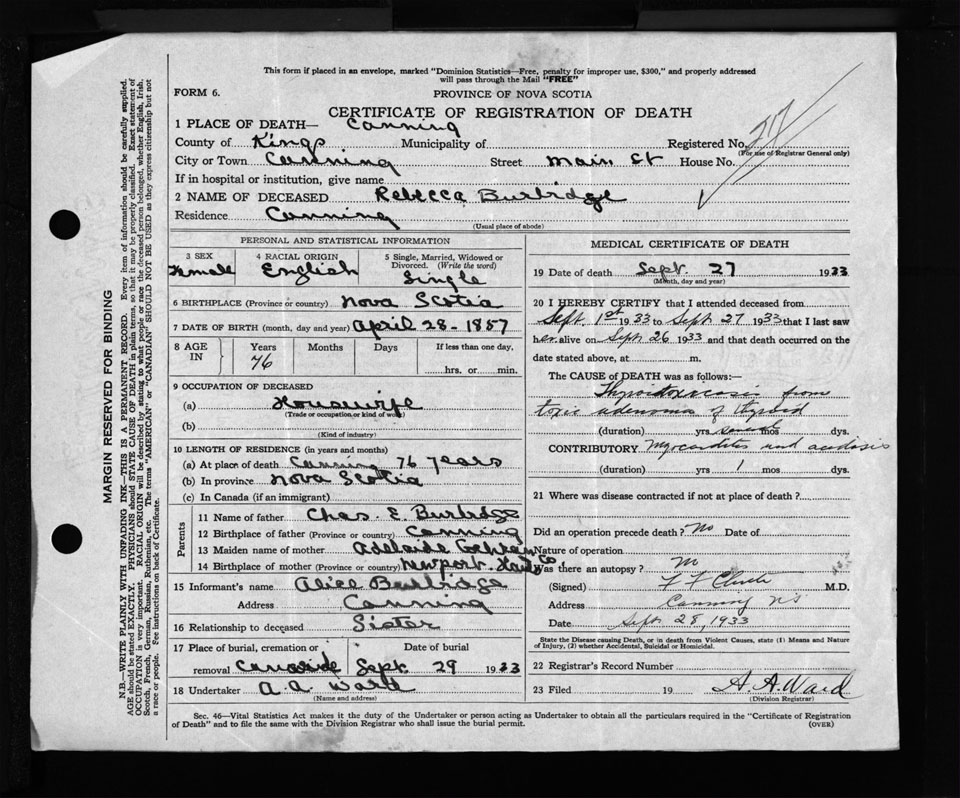 This form if placed in an envelope, marked "Dominion Statistics—Free, penalty for improper use, $300," and properly addressed
will pass through the Mail "FREE"
FORM 6.
PROVINCE OF NOVA SCOTIA
CERTIFICATE OF REGISTRATION OF DEATH
1 PLACE OF DEATH— Canning
County of Kings Municipality of Registered No.
(For use of Registrar General only)
City or Town Canning Street Main St House No.
If in hospital or institution, give name
2 NAME OF DECEASED Rebecca Burbidge
Residence Canning
(Usual place of abode)
PERSONAL AND STATISTICAL INFORMATION
3 SEX 4 RACIAL ORIGIN 5 Single, Married, Widowed or
Divorced. (Write the word)
Female English Single
6 BIRTHPLACE (Province or country) Nova Scotia
7 DATE OF BIRTH (month, day and year) April 28 - 1857
8 AGE IN Years Months Days If less than one day,
76 hrs. or min.
9 OCCUPATION OF DECEASED
(a) Housewife
(Trade or occupation or kind of work)
(b)
(Kind of industry)
10 LENGTH OF RESIDENCE (in years and months)
(a) At place of death Canning 76 years
(b) In province Nova Scotia
(c) In Canada (if an immigrant)
Parents
11 Name of father Chas. E. Burbidge
12 Birthplace of father (Province or country) Canning
13 Maiden name of mother Adelaide Cohran
14 Birthplace of mother (Province or country) Newport. Hants Co.
15 Informant's name Alice Burbidge
Address Canning
16 Relationship to deceased Sister
17 Place of burial, cremation or Date of burial
removal Sept 29 1933
18 Undertaker A. A. Ward
(Name and address)
MEDICAL CERTIFICATE OF DEATH
19 Date of death Sept. 27 1933
(Month, day and year)
20 I HEREBY CERTIFY that I attended deceased from
Sept. 1st 1933 to Sept 27 1933 that I last saw
her alive on Sept 26 1933 and that death occurred on the
date stated above, at m.
The CAUSE OF DEATH was as follows:—
Thyrotoxicosis from
toxic adenoma of thyroid
(duration) yrs several mos dys.
CONTRIBUTORY Myocarditis and acidosis
(duration) yrs 1 mos dys.
21 Where was disease contracted if not at place of death?
Did an operation precede death? No Date of
Nature of operation
Was there an autopsy? No
(Signed) M.D.
Address Canning NS
Date Sept. 28, 1933
State the Disease causing Death, or in death from Violent Causes, state (1) Means and Nature
of Injury, (2) whether Accidental, Suicidal or Homicidal.
22 Registrar's Record Number
23 Filed 19 A. A. Ward
(Division Registrar)
Sec. 46—Vital Statistics Act makes it the duty of the Undertaker or person acting as Undertaker to obtain all the particulars required in the "Certificate of Registration
of Death" and to file the same with the Division Registrar who shall issue the burial permit. (OVER)
MARGIN RESERVED FOR BINDING
N.B.—WRITE PLAINLY WITH UNFADING INK—THIS IS A PERMANENT RECORD. Every item of information should be carefully supplied.
AGE should be stated EXACTLY. PHYSICIANS should STATE CAUSE OF DEATH in plain terms, so that it may be properly classified. Exact statement of
OCCUPATION is very important. RACIAL ORIGIN will be described by stating to what people or race the deceased person belonged, whether English, Irish,
Scotch, French, German, Russian, Ruthenian, etc. The terms "AMERICAN" or "CANADIAN" SHOULD NOT BE USED as they express citizenship but not
a race or people. See instructions on back of Certificate.